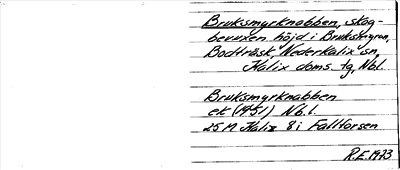 Bruksmyrknabben, skog-
bevuxen höjd i Bruksmyran,
Bodträsk, Nederkalix sn,
Kalix doms. tg, Nbl.
Bruksmyrknabben
ek (1951) Nb.l.
25 M Kalix 8 i Fallforsen
R.E. 1973